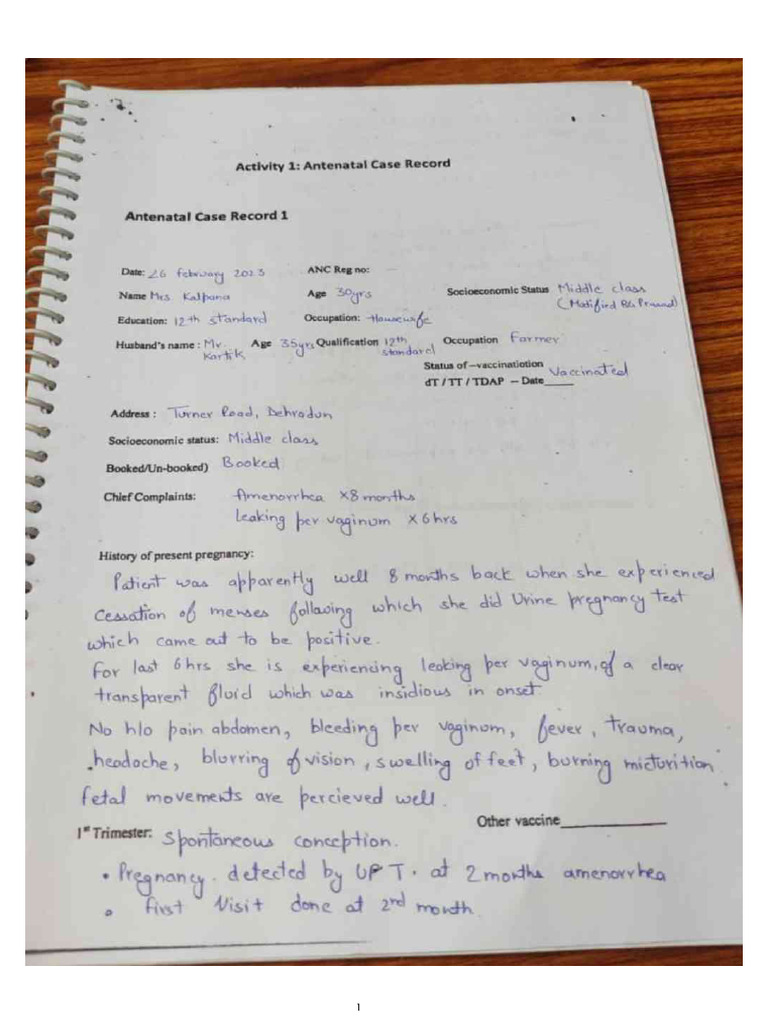 Activity 1: Antenatal Case Record
Antenatal Case Record 1
Date: 26 february 2023 ANC Reg no: -
Name Mrs Kalpana Age 30yrs Socioeconomic Status Middle class
(Modified BG Prasad)
Education: 12th standard Occupation: Housewife
Husband's name : Mr. Kartik Age 35yrs Qualification 12th standard Occupation Farmer
Status of –vaccination Vaccinated
dT / TT / TDAP – Date_____
Address : Turner Road, Dehradun
Socioeconomic status: Middle class
Booked/Un-booked) Booked
Chief Complaints: Amenorrhea x8 months
leaking per vaginum x 6 hrs
History of present pregnancy:
Patient was apparently well 8 months back when she experienced
cessation of menses following which she did Urine pregnancy test
which came out to be positive.
For last 6 hrs she is experiencing leaking per vaginum, of a clear
transparent fluid which was insidious in onset
No h/o pain abdomen, bleeding per vaginum, fever, trauma,
headache, blurring of vision, swelling of feet, burning micturition
fetal movements are percieved well.
Other vaccine_______________
1st Trimester: Spontaneous conception.
• Pregnancy detected by UPT. at 2 months amenorrhea
• first visit done at 2nd month.
1